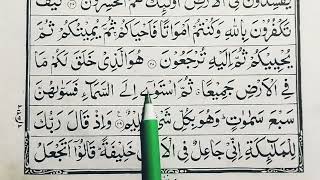 يُفْسِدُوْنَ فِي الْاَرْضِ اُولٰٓئِكَ هُمُ الْخٰسِرُوْنَ ﴿۲۷﴾ كَيْفَ
تَكْفُرُوْنَ بِاللّٰهِ وَكُنْتُمْ اَمْوَاتًا فَاَحْيَاكُمْ ثُمَّ يُمِيْتُكُمْ ثُمَّ
يُحْيِيْكُمْ ثُمَّ اِلَيْهِ تُرْجَعُوْنَ ﴿۲۸﴾ هُوَ الَّذِيْ خَلَقَ لَكُمْ مَّا
فِي الْاَرْضِ جَمِيْعًا ثُمَّ اسْتَوٰٓى اِلَى السَّمَآءِ فَسَوّٰىهُنَّ
سَبْعَ سَمٰوٰتٍ وَهُوَ بِكُلِّ شَيْءٍ عَلِيْمٌ ﴿۲۹﴾ وَاِذْ قَالَ رَبُّكَ
لِلْمَلٰٓئِكَةِ اِنِّيْ جَاعِلٌ فِي الْاَرْضِ خَلِيْفَةً قَالُوْٓا اَتَجْعَلُ